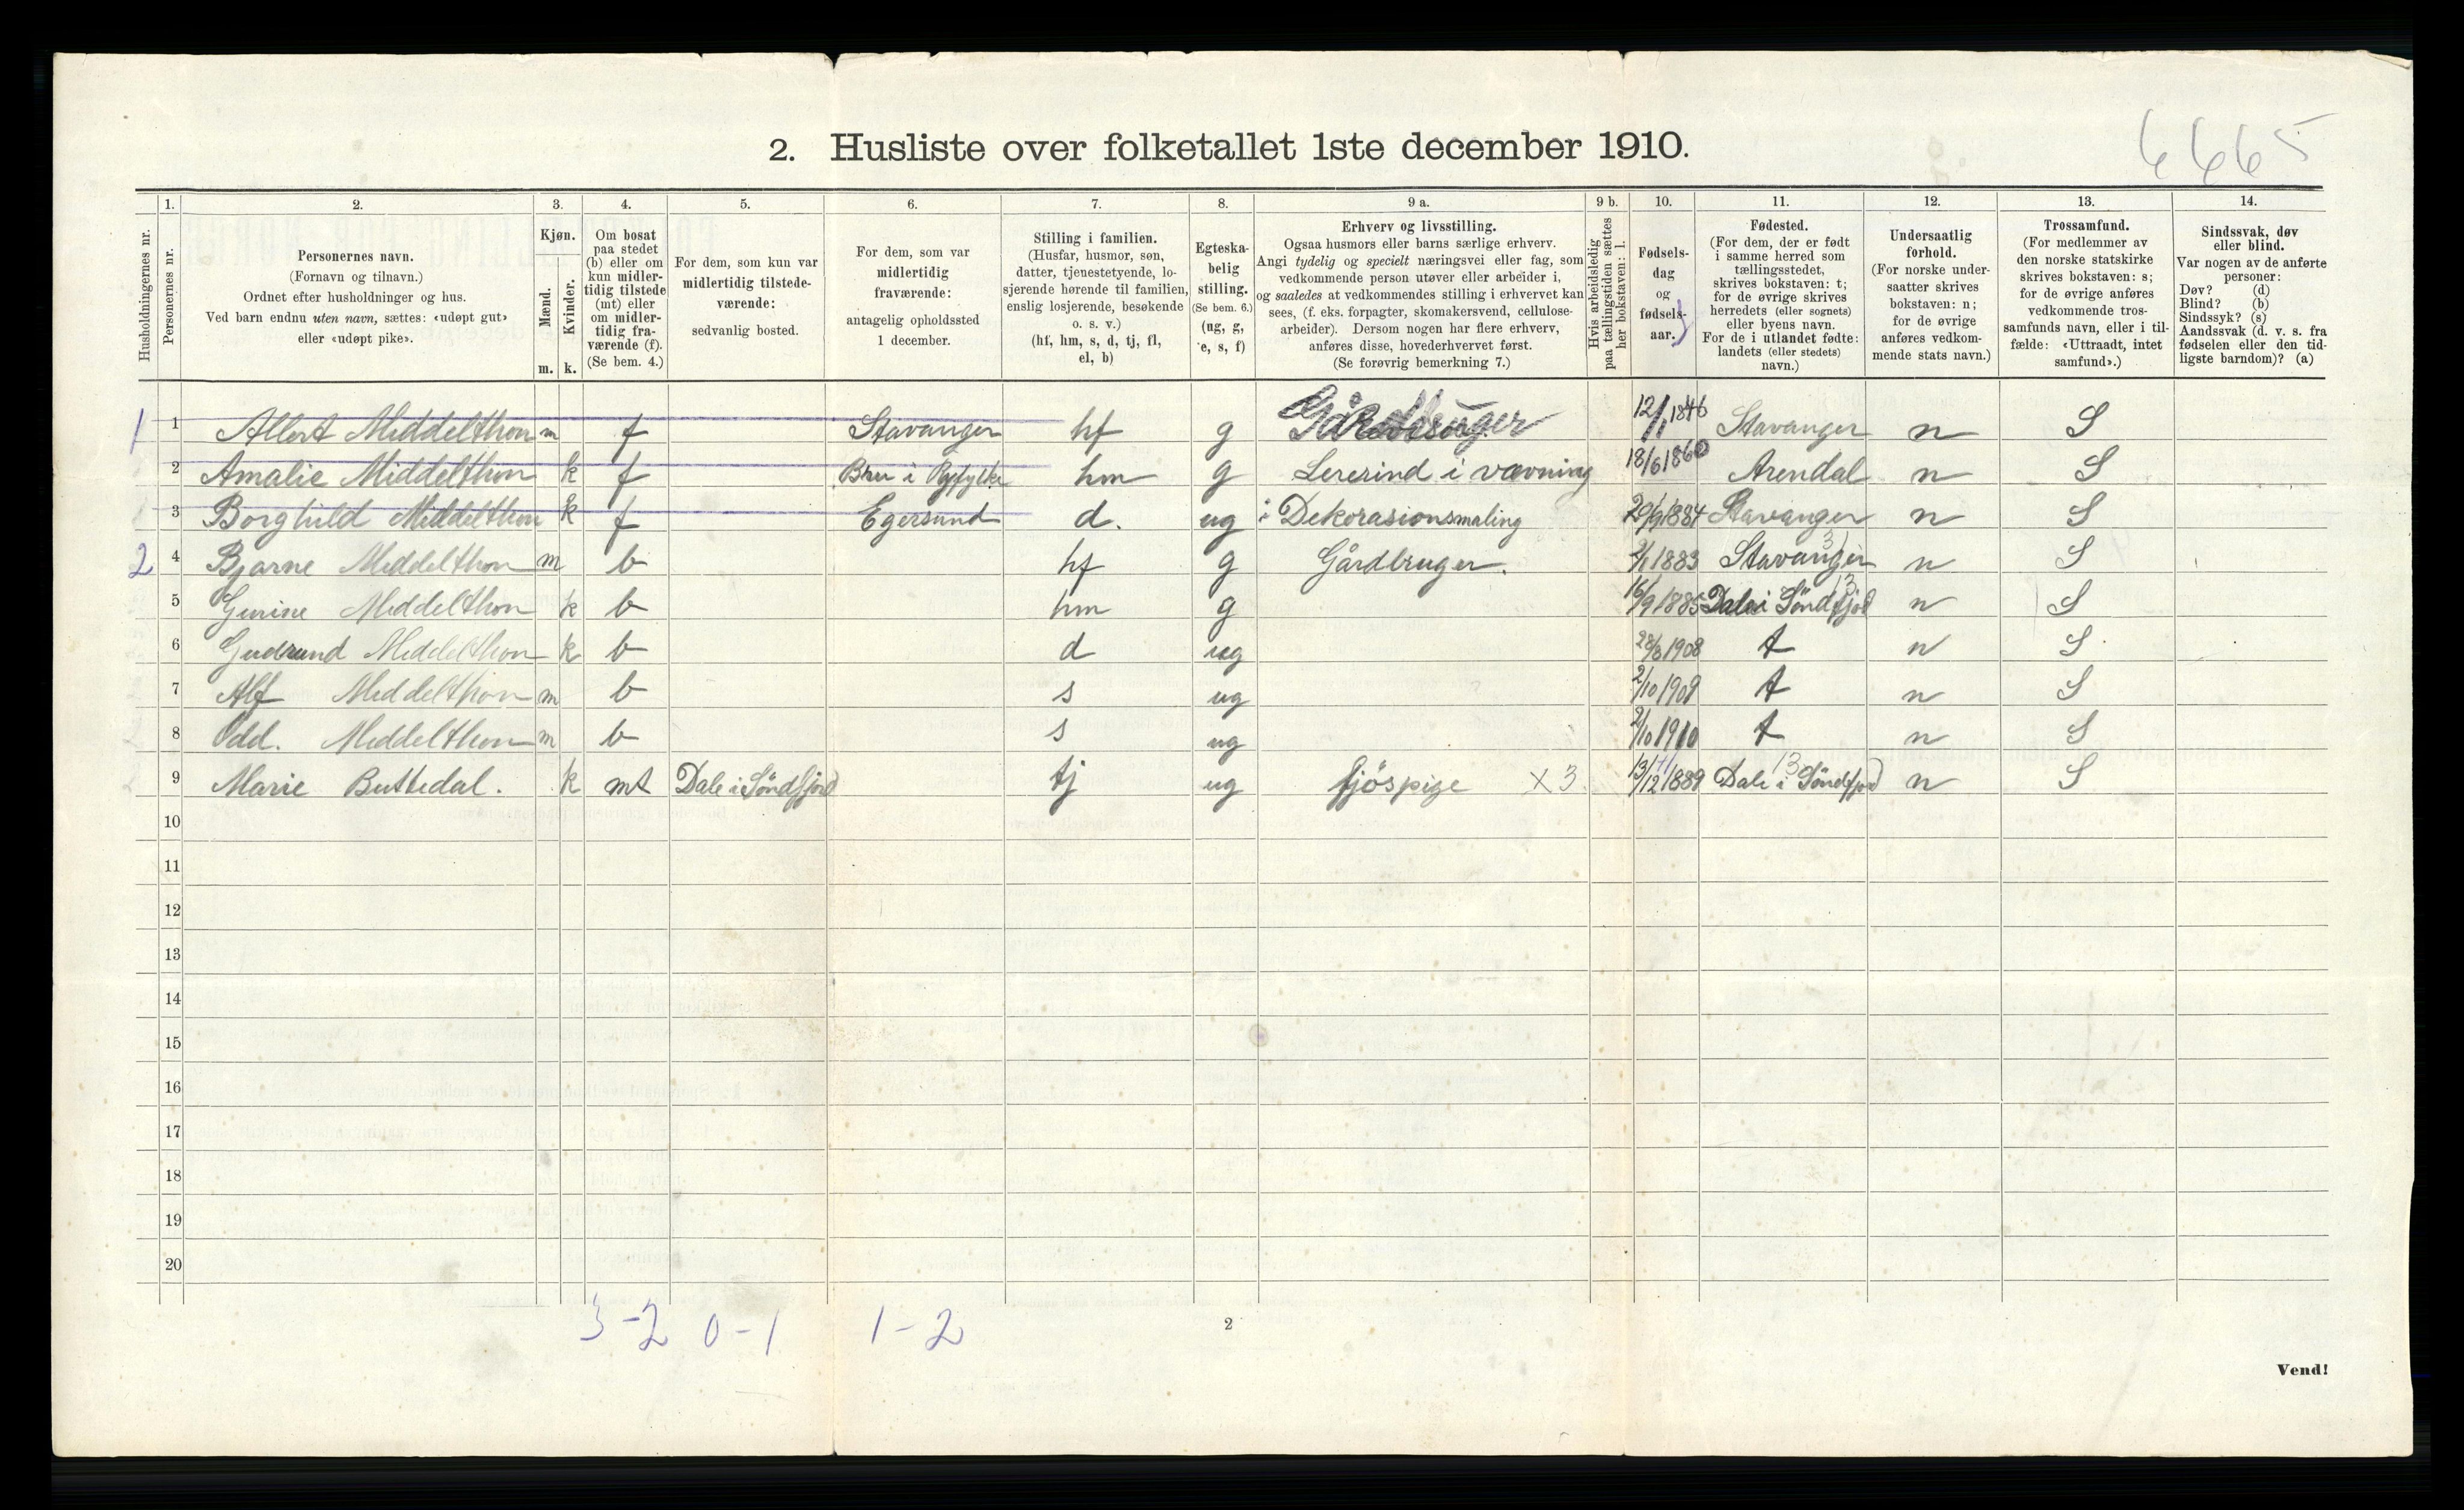 6665
2. Husliste over folketallet 1ste december 1910.
Husholdningernes nr.
1. Personernes nr.
2. Personernes navn.
(Fornavn og tilnavn.)
Ordnet efter husholdninger og hus.
Ved barn endnu uten navn, sættes: «udøpt gut»
eller «udøpt pike».
3. Kjøn.
Mænd. Kvinder.
m. k.
4. Om bosat
paa stedet
(b) eller om
kun midler-
tidig tilstede
(mt) eller
om midler-
tidig fra-
værende (f).
(Se bem. 4.)
5. For dem, som kun var
midlertidig tilstede-
værende:
sedvanlig bosted.
6. For dem, som var
midlertidig
fraværende:
antagelig opholdssted
1 december.
7. Stilling i familien.
(Husfar, husmor, søn,
datter, tjenestetyende, lo-
sjerende hørende til familien,
enslig losjerende, besøkende
o. s. v.)
(hf, hm, s, d, tj, fl,
el, b)
8. Egteska-
belig
stilling.
(Se bem. 6.)
(ug, g,
e, s, f)
9 a. Erhverv og livsstilling.
Ogsaa husmors eller barns særlige erhverv.
Angi tydelig og specielt næringsvei eller fag, som
vedkommende person utøver eller arbeider i,
og saaledes at vedkommendes stilling i erhvervet kan
sees, (f. eks. forpagter, skomakersvend, cellulose-
arbeider). Dersom nogen har flere erhverv,
anføres disse, hovederhvervet først.
(Se forøvrig bemerkning 7.)
9 b. Hvis arbeidsledig
paa tællingstiden sættes
her bokstaven: l.
10. Fødsels-
dag
og
fødsels-
aar.
11. Fødested.
(For dem, der er født
i samme herred som
tællingsstedet,
skrives bokstaven: t;
for de øvrige skrives
herredets (eller sognets)
eller byens navn.
For de i utlandet fødte:
landets (eller stedets)
navn.)
12. Undersaatlig
forhold.
(For norske under-
saatter skrives
bokstaven: n;
for de øvrige
anføres vedkom-
mende stats navn.)
13. Trossamfund.
(For medlemmer av
den norske statskirke
skrives bokstaven: s;
for de øvrige anføres
vedkommende tros-
samfunds navn, eller i til-
fælde: «Uttraadt, intet
samfund».)
14. Sindssvak, døv
eller blind.
Var nogen av de anførte
personer:
Døv? (d)
Blind? (b)
Sindssyk? (s)
Aandssvak (d. v. s. fra
fødselen eller den tid-
ligste barndom)? (a)
1 1 Allert Middelthon m f Stavanger hf g Gårdbruger 12/1 1846 Stavanger n S
2 Amalie Middelthon k f Bru i Ryfylke hm g Lererind i vævning 18/6 1860 Arendal n S
3 Borghild Middelthon k f Egersund d. ug i Dekorasionsmaling 20/9 1884 Stavanger n S
2 4 Bjarne Middelthon m b hf g Gårdbruger. 1883 Stavanger n S
5 Gurine Middelthon k b hm g 16/9 1885 Dale i Söndfjord n S
6 Gudrund Middelthon k b d ug 28/8 1908 t n S
7 Alf Middelthon m b s ug 2/10 1909 t n S
8 Odd. Middelthon m b s ug 2/10 1910 t n S
9 Marie Buttedal. k mt Dale i Söndfjord tj ug fjöspige x3 13/12 1889 Dale i Söndfjord n S
10
11
12
13
14
15
16
17
18
19
20
3-2 0-1 1-2
2
Vend!